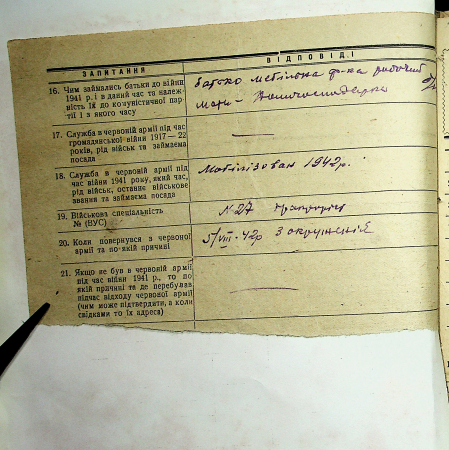 ЗАПИТАННЯ ВІДПОВІДІ
16. Чим займались батьки до війни
1941 р. і в даний час та належ-
ність їх до комуністичної пар-
тії і з якого часу
батько мебільна ф-ка робочий
мати -
17. Служба в червоній армії під час
громадянської війни 1917—22
років, рід військ та займаєма
посада
18. Служба в червоній армії під
час війни 1941 року, який час,
рід військ, останнє військове
звання та займаєма посада
Мобілізован 1942 р.
19. Військова спеціальність
№ (ВУС)
№ 27
20. Коли повернувся з червоної
армії та по якій причині
5/VIII-42р З окруженія
21. Якщо не був в червоній армії
під час війни 1941 р., то по
якій причині та де перебував
підчас відходу червоної армії
(чим може підтвердити, а коли
свідками то їх адреса)